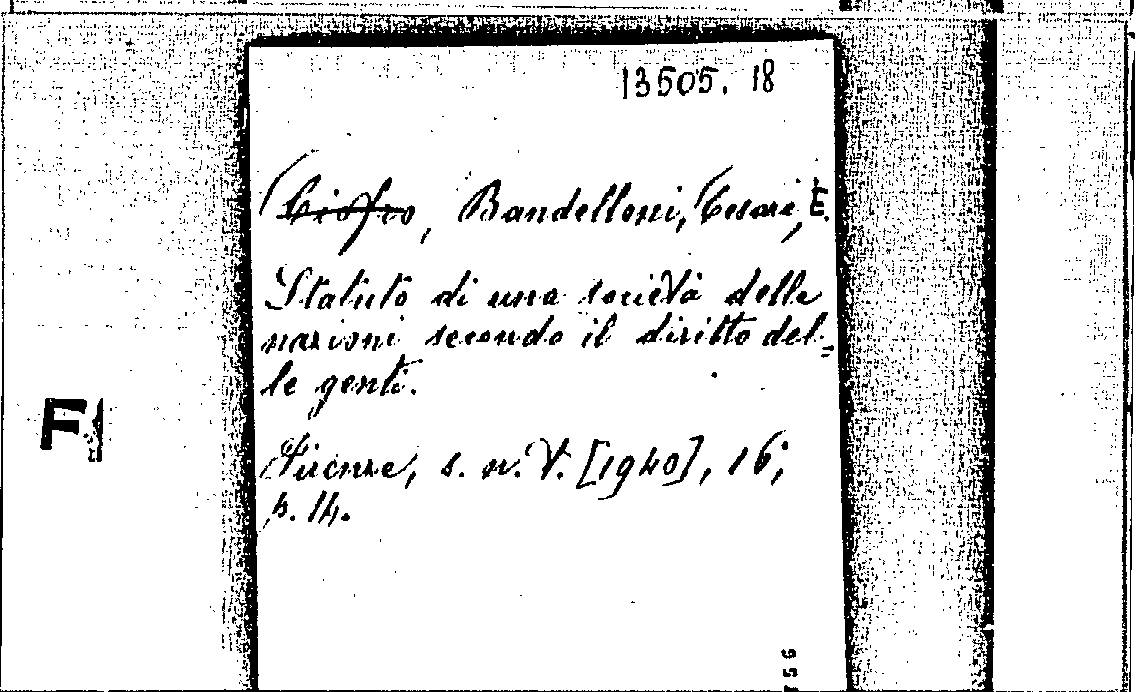 13505. 18
Bandelloni, Cesari, E.
Statuto di una società delle
nazioni secondo il diritto del=
le genti.
Firenze, s. n. T. [1940], 16;
p. 14.
F
756